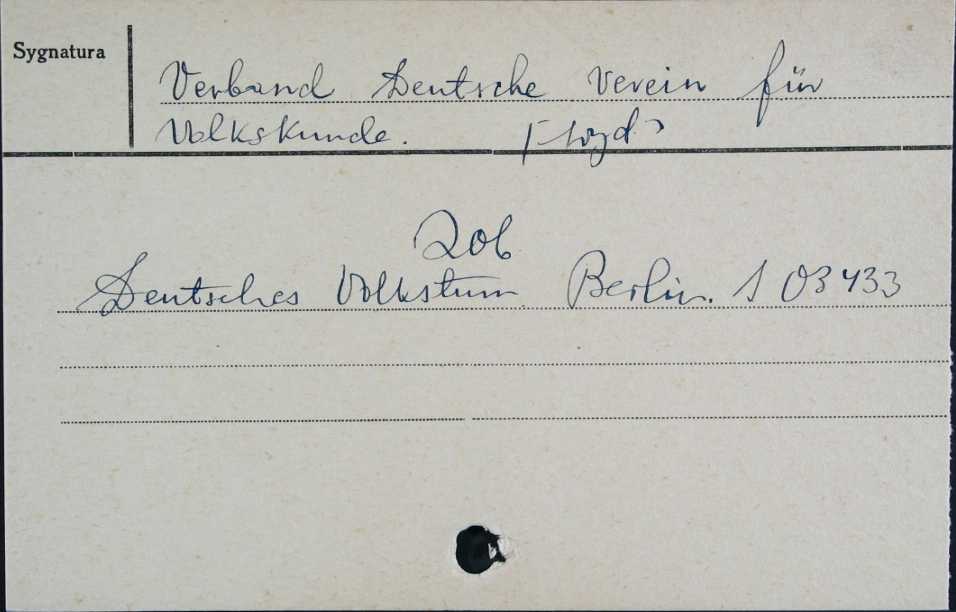 Sygnatura
Verband Deutsche Verein für
Volkskunde. [wyd]
Zob
Deutsches Volkstum. Berlin. S 03433